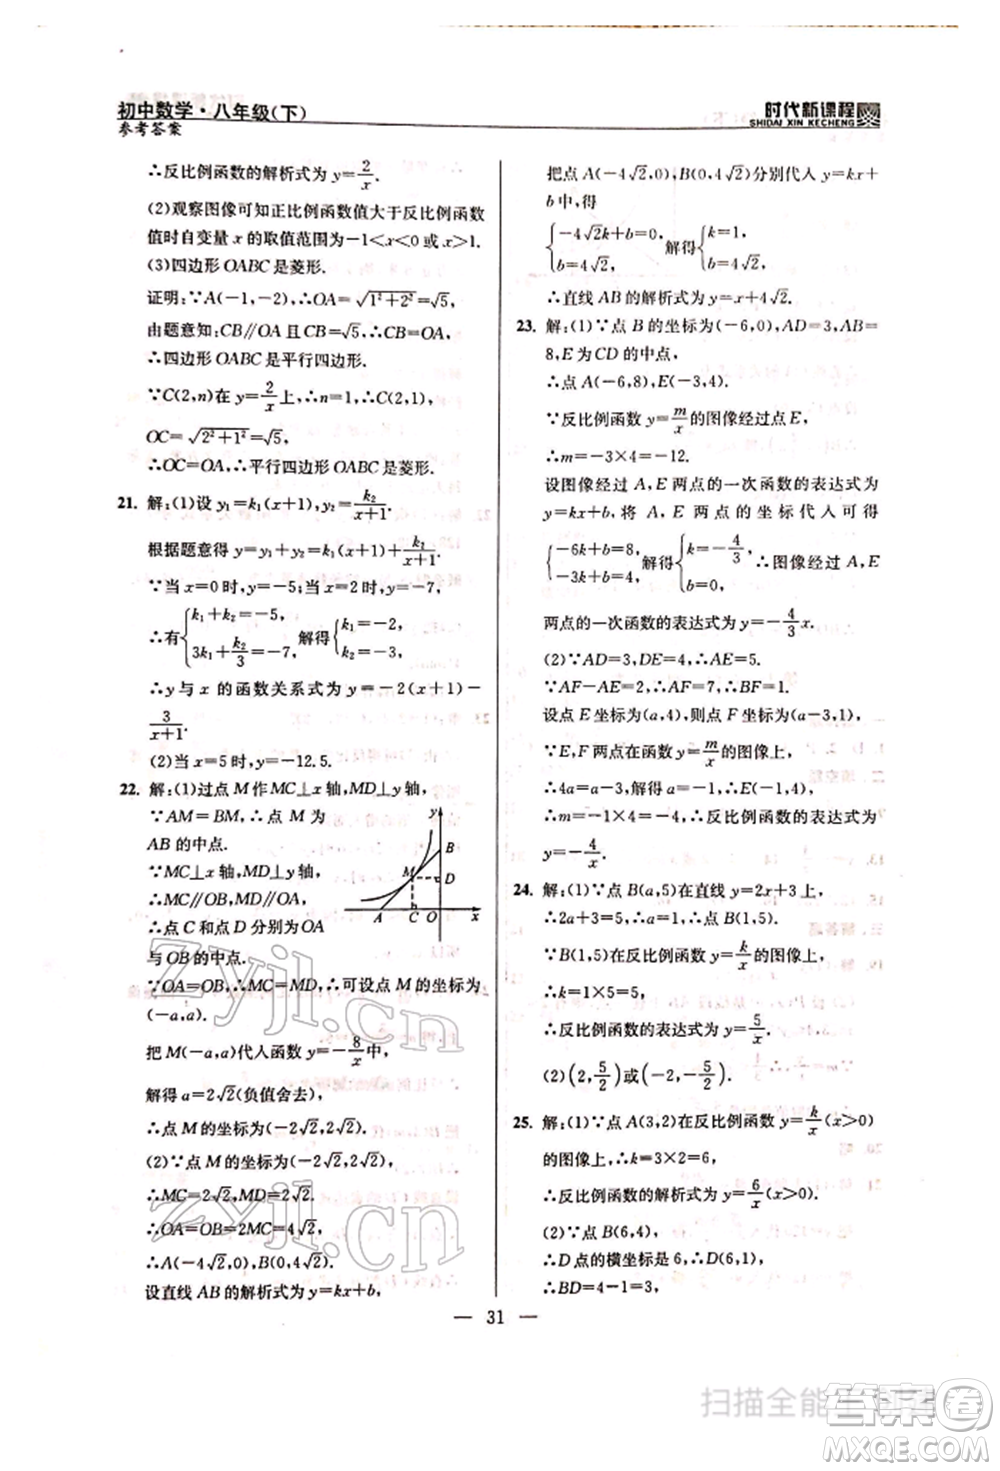 初中数学·八年级(下)
参考答案
时代新课程
SHIDAI XIN KECHENG
∴反比例函数的解析式为 y=2/x.
(2)观察图像可知正比例函数值大于反比例函数
值时自变量 x 的取值范围为-1<x<0 或 x>1.
(3)四边形 OABC 是菱形.
证明:∵A(-1,-2),∴OA=√(1²+2²)=√5,
由题意知:CB∥OA 且 CB=√5,∴CB=OA,
∴四边形 OABC 是平行四边形.
∵C(2,n)在 y=2/x上,∴n=1,∴C(2,1),
OC=√(2²+1²)=√5,
∴OC=OA,∴平行四边形 OABC 是菱形.
21. 解:(1)设 y₁=k₁(x+1),y₂=k₂/(x+1).
根据题意得 y=y₁+y₂=k₁(x+1)+k₂/(x+1).
∵当 x=0 时,y=-5;当 x=2 时,y=-7,
∴有{k₁+k₂=-5, 3k₁+k₂/3=-7, 解得{k₁=-2, k₂=-3,
∴y 与 x 的函数关系式为 y=-2(x+1)-
3/(x+1).
(2)当 x=5 时,y=-12.5.
22. 解:(1)过点 M 作MC⊥x 轴,MD⊥y 轴,
∵AM=BM,∴点 M 为
AB 的中点.
∵MC⊥x 轴,MD⊥y 轴,
∴MC∥OB,MD∥OA,
∴点 C 和点 D 分别为OA
与 OB 的中点.
y
B
M
D
A
C
O
x
∵OA=OB,∴MC=MD,∴可设点 M 的坐标为
(-a,a).
把 M(-a,a)代入函数 y=-8/x中,
解得 a=2√2(负值舍去),
∴点 M 的坐标为(-2√2,2√2).
(2)∵点 M 的坐标为(-2√2,2√2),
∴MC=2√2,MD=2√2,
∴OA=OB=2MC=4√2,
∴A(-4√2,0),B(0,4√2).
设直线 AB 的解析式为 y=kx+b,
把点 A(-4√2,0),B(0,4√2)分别代入 y=kx+
b 中,得
{-4√2k+b=0, b=4√2, 解得{k=1, b=4√2.
∴直线 AB 的解析式为 y=x+4√2.
23. 解:(1)∵点 B 的坐标为(-6,0),AD=3,AB=
8,E 为 CD 的中点,
∴点 A(-6,8),E(-3,4).
∵反比例函数 y=m/x的图像经过点 E,
∴m=-3×4=-12.
设图像经过 A,E 两点的一次函数的表达式为
y=kx+b,将 A,E 两点的坐标代入可得
{-6k+b=8, -3k+b=4, 解得{k=-4/3, b=0, ∴图像经过 A,E
两点的一次函数的表达式为 y=-4/3x.
(2)∵AD=3,DE=4,∴AE=5.
∵AF-AE=2,∴AF=7,∴BF=1.
设点 E 坐标为(a,4),则点 F 坐标为(a-3,1),
∵E,F 两点在函数 y=m/x的图像上,
∴4a=a-3,解得 a=-1,∴E(-1,4),
∴m=-1×4=-4,∴反比例函数的表达式为
y=-4/x.
24. 解:(1)∵点 B(a,5)在直线 y=2x+3 上,
∴2a+3=5,∴a=1,∴点 B(1,5).
∵B(1,5)在反比例函数 y=k/x的图像上,
∴k=1×5=5,
∴反比例函数的表达式为 y=5/x.
(2)(2,5/2)或(-2,-5/2).
25. 解:(1)∵点 A(3,2)在反比例函数 y=k/x(x>0)
的图像上,∴k=3×2=6,
∴反比例函数的解析式为 y=6/x(x>0).
(2)∵点 B(6,4),
∴D 点的横坐标是 6,∴D(6,1),
∴BD=4-1=3,
— 31 —
zyjl.cn
zyjl.cn
答案卷
MXQE.COM